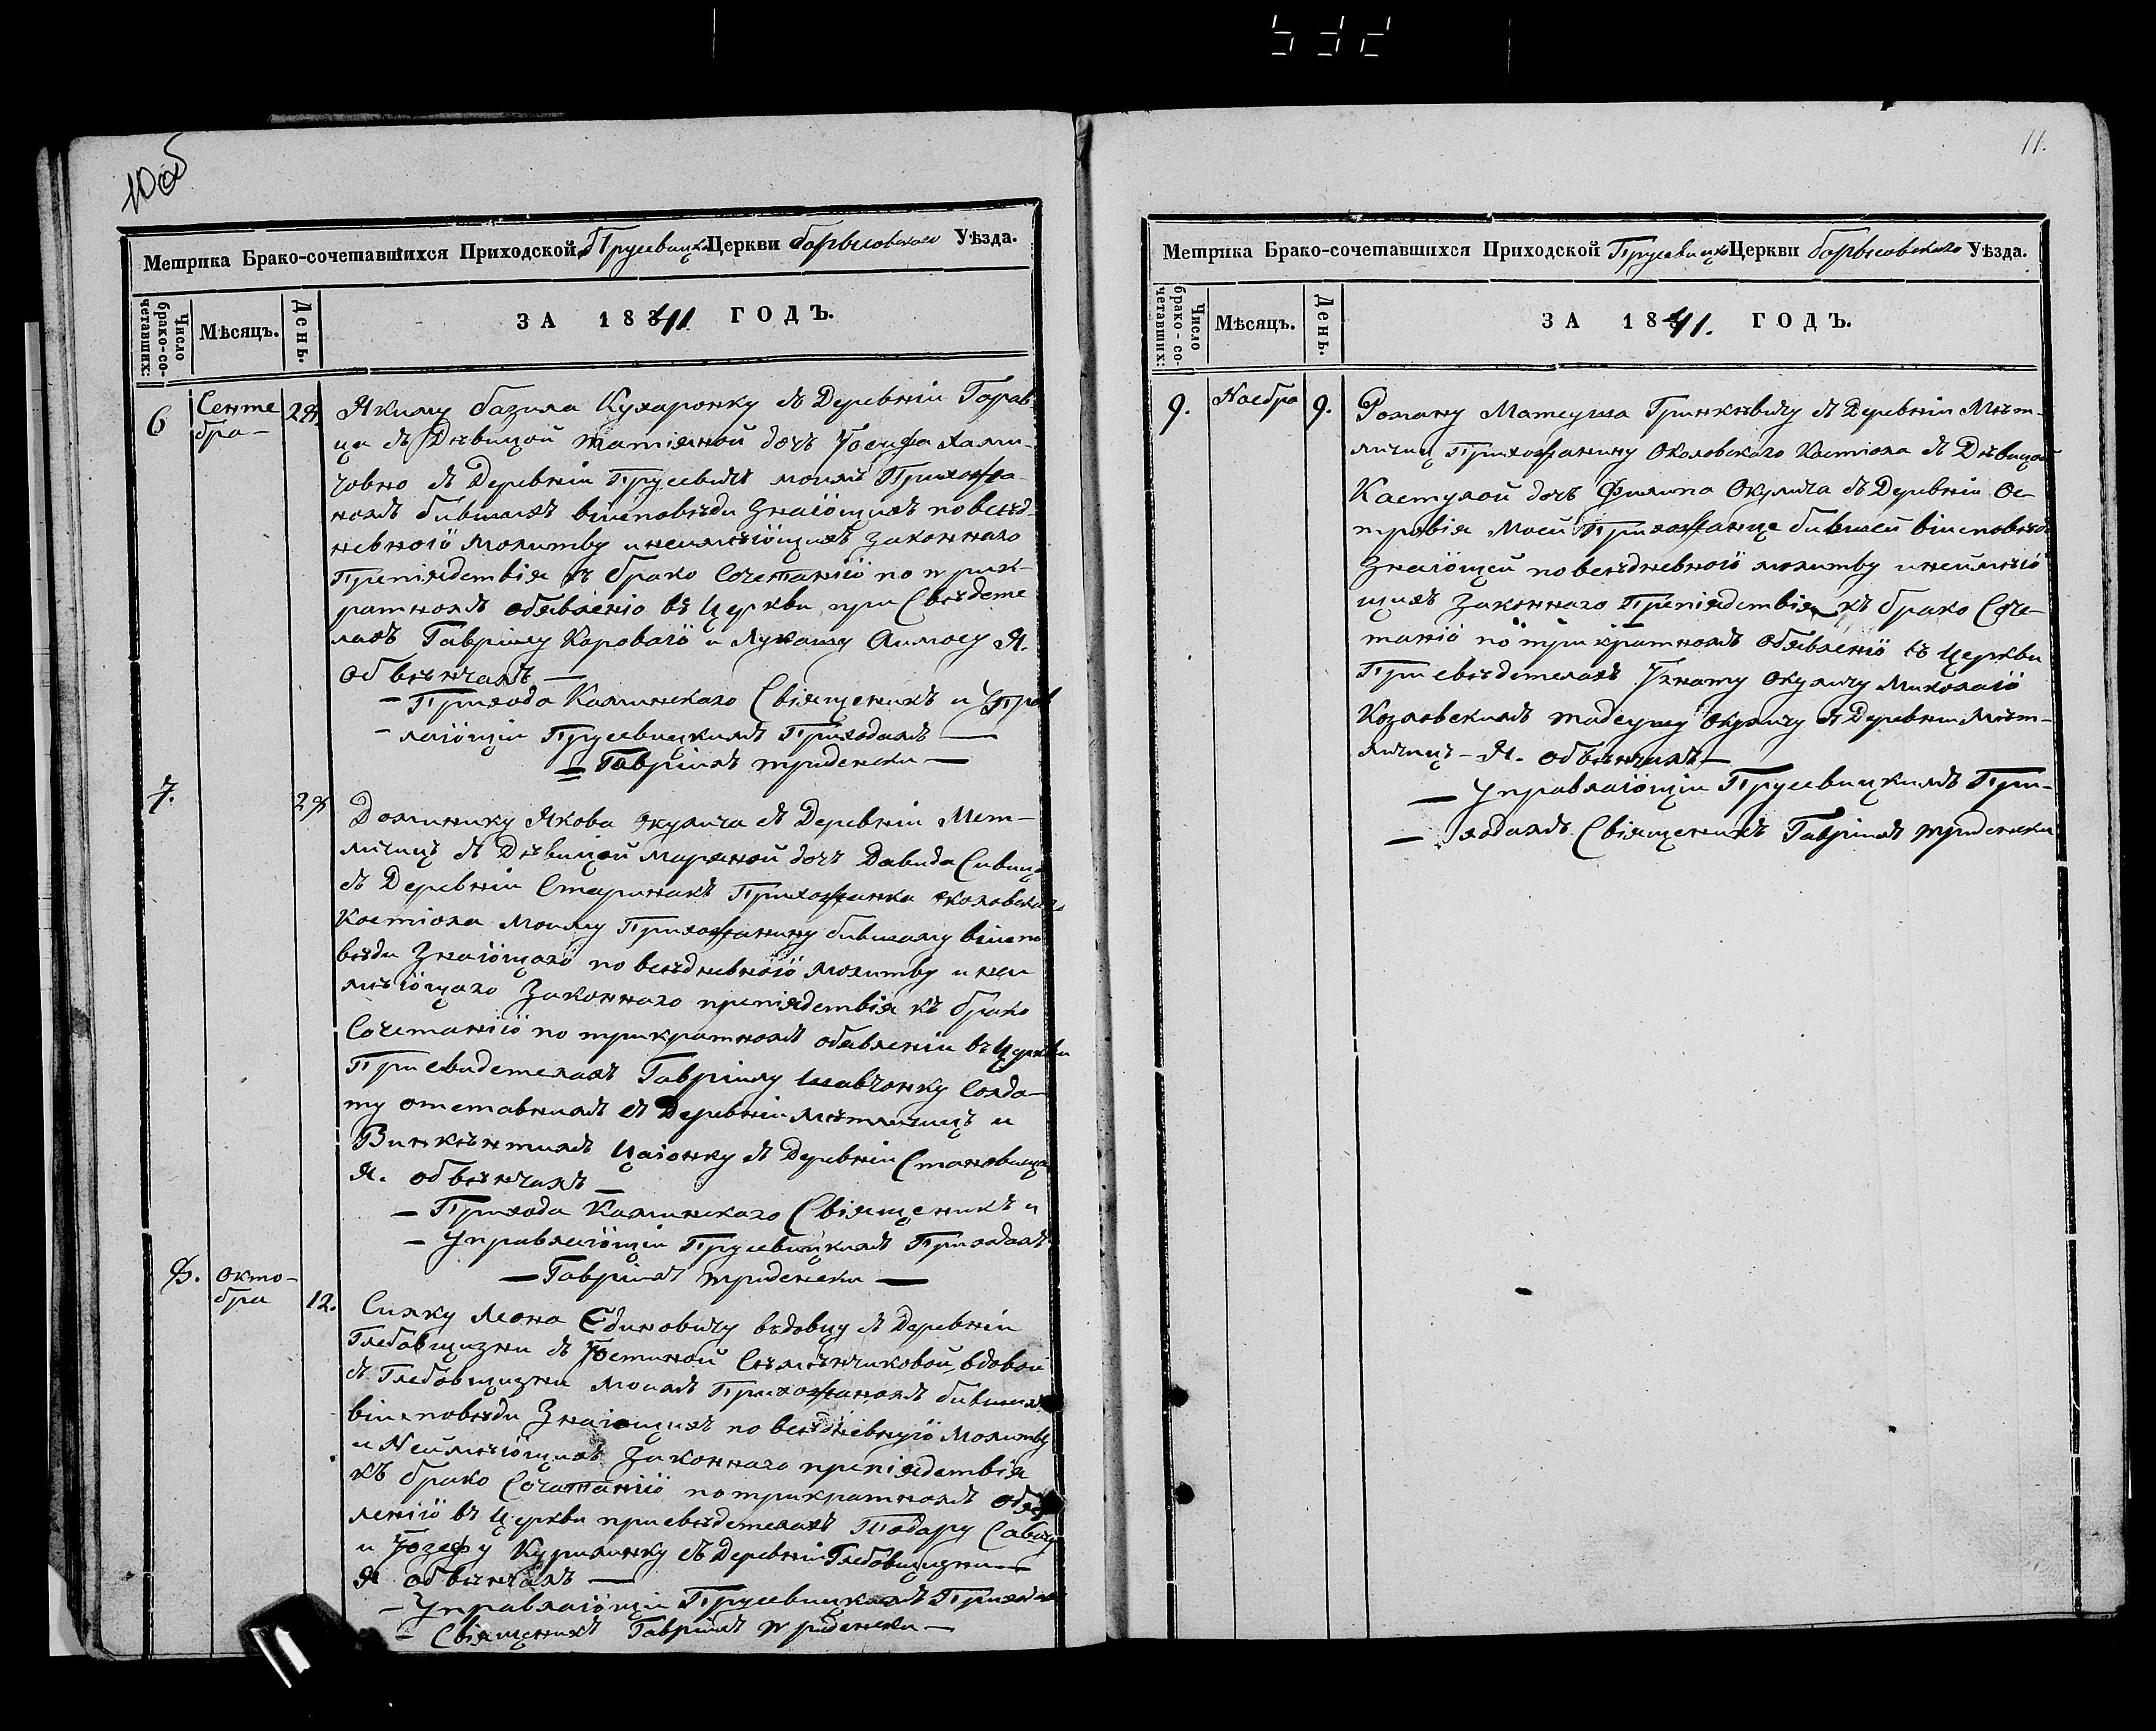 532
10об
Метрика Брако-сочетавшихся Приходской Прусевицк Церкви борысовскаго Уѣзда.
Число брако-сочетавшихъ:
Мѣсяцъ.
День.
ЗА 1841 ГОДЪ.
6
Сентебра—
Якиму базила Кухаронку съ Деревніи Горав
ца съ Дѣвицой татіяной дочъ Іосифа
човно съ Деревніи Прусевичъ моимъ Прихожа-
номъ бившимъ віисповѣди Знаіощимъ повсед-
невноіо молитву инеимѣіощимъ Законнаго
Препіядствія къ брако Сочетанііо потрик-
ратномъ обявленіо въ Церкви при Свѣдете
лахъ Гавріилу Короваіо и Лукашу Я.
Обвѣнчалъ—
—Прихода Каминскаго Свіященикъ и Управ
—ляіощіи Прусевицкимъ Приходамъ—
—Гавріилъ триденски—
7.
Доминику Якова Окулича съ Деревніи Мет-
личицъ съ Дѣвицой Маряной дочъ Давида Сивиц
съ Деревніи Старинакъ Прихожанка околовскаго
Костіола Моиму Прихожанину бившаму віиспо
вѣди Знаіощаго повсѣдневноіо молитву инеи
мѣіощаго Законнаго препіядствія къ брако
Сочетанііо потрикратномъ обявленіи въ Церкви
Присвидетелахъ Гавріилу Шавчонку Солда-
ту отставнимъ съ Деревніи Мѣтличицъ и
Винкѣнтимъ Цаіонку съ Деревніи Становища
Я. обвѣнчалъ—
—Прихода Каминскаго Свіященикъ и
—Управляіощіи Прусевицкимъ Приходамъ
—Гавріилъ триденски—
8.
окто-
бра
12.
Силку Леона Єдиновичу вѣдовцу съ Деревніи
Глебовщизни съ Іостиной Сѣмѣнчиковой вдовой
съ Глебовщизни моимъ Прихожаномъ бившимъ
віисповѣди Знаіощихъ повсѣдневнуіо Молитву
и Неимѣіощихъ Законнаго препіядствія
къ брако Сочатанііо потрикратномъ обяв
ленііо въ Церкви присвѣдетелахъ Тодару Савичу
и Іозефу Курилинку съ Деревніи Глебовщизни—
Я обвѣнчалъ—
—Управляіощіи Прусевицкимъ Приходам
—Свіященикъ Гавріилъ триденски—
11.
Метрика Брако-сочетавшихся Приходской Прусевицко Церкви борысовскаго Уѣзда.
Число брако-сочетавшихъ:
Мѣсяцъ.
День.
ЗА 1841. ГОДЪ.
9.
Ноебра
9.
Роману Матеуша Гринкѣвичу съ Деревніи Мѣт-
личиц Прихожанину Околовскаго Костіола съ Дѣвицой
Кастулой дочъ Филипа Окулича съ Деревніи Ос-
тровія Моей Прихожанце бившей віисповѣд
Знаіощей повсѣдневноіо молитву инеимѣіо
щихъ Законнаго Препіядствія къ брако Соче-
таніо потрикратномъ обявленіо въ Церкви
Присвѣдетелахъ Игнату Окуличу Миколаіо
Козловскимъ тадеушу Окуличу съ Деревни Мѣт-
личицъ—Я. обвѣнчилъ—
—Управляіощіи Прусевицкимъ При-
—ходамъ Свіященикъ Гавріилъ триденски